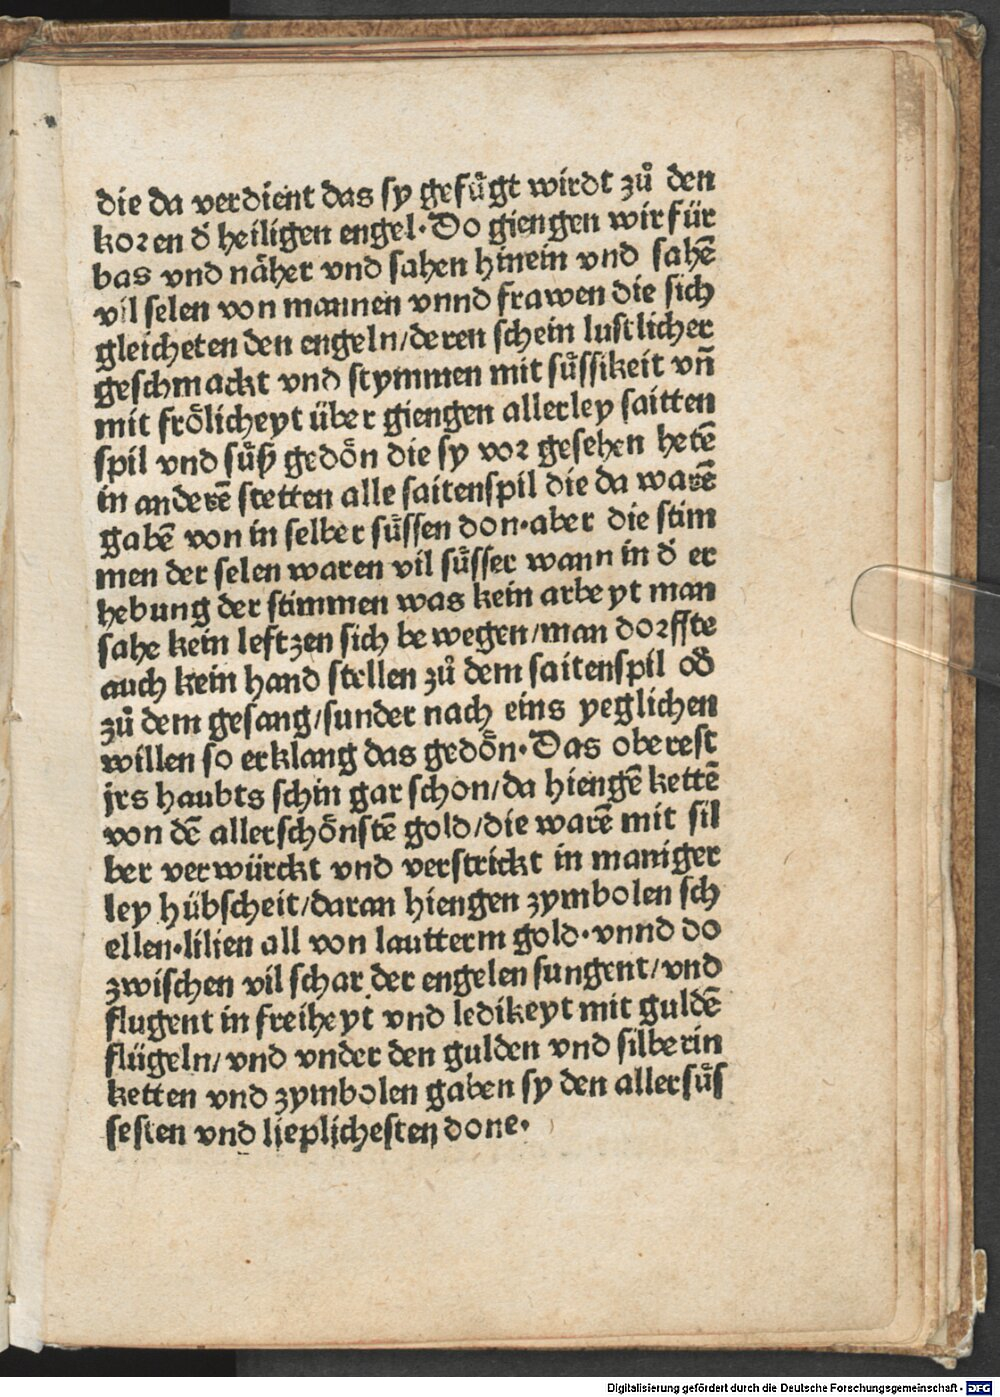 die da verdient das sy gefuͤgt wirdt zuͦ den
koꝛen dˀ heiligen engel· Do giengen wir für
bas vnd naͤher vnd sahen hinein vnd sahē
vil selen von mannen vnnd frawen die sich
gleicheten den engeln/deren schein lustlicher
geschmackt vnd stymmen mit suͤssikeit vñ
mit froͤlicheyt über giengen allerley saitten
spil vnd suͤß gedoͤn die sy voꝛ gesehen hetē
in anderē stetten alle saitenspil die da warē
gabē von in selber suͤssen don·aber die stim
men der selen waren vil suͤsser wann in dˀ er
hebung der stimmen was kein arbeyt man
sahe kein leftzen sich bewegen/man doꝛffte
auch kein hand stellen zuͦ dem saitenspil odˀ
zuͦ dem gesang/sunder nach eins yeglichen
willen so erklang das gedoͤn· Das oberest
jrs haubts schin gar schon/da hiengē kettē
von dē allerschoͤnstē gold/die warē mit sil
ber verwürckt vnd verstrickt in maniger
ley hübscheit/daran hiengen zymbolen sch
ellen·lilien all von lautterm gold·vnnd do
zwischen vil schar der engelen sungent/vnd
flugent in freiheyt vnd ledikeyt mit guldē
flügeln/vnd vnder den gulden vnd silberin
ketten vnd zymbolen gaben sy den allersuͤs
sesten vnd lieplichesten done·
Digitalisierung gefördert durch die Deutsche Forschungsgemeinschaft - DFG